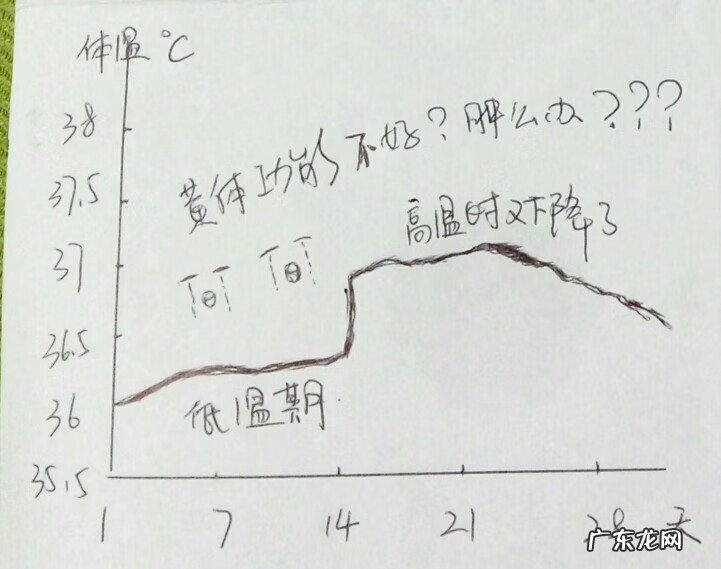 体温 ℃
38
黄体功能不好？肿么办？？？
37.5
高温时又下降了
37
36.5
36
低温期
35.5
1 7 14 21 28 天
广东龙网